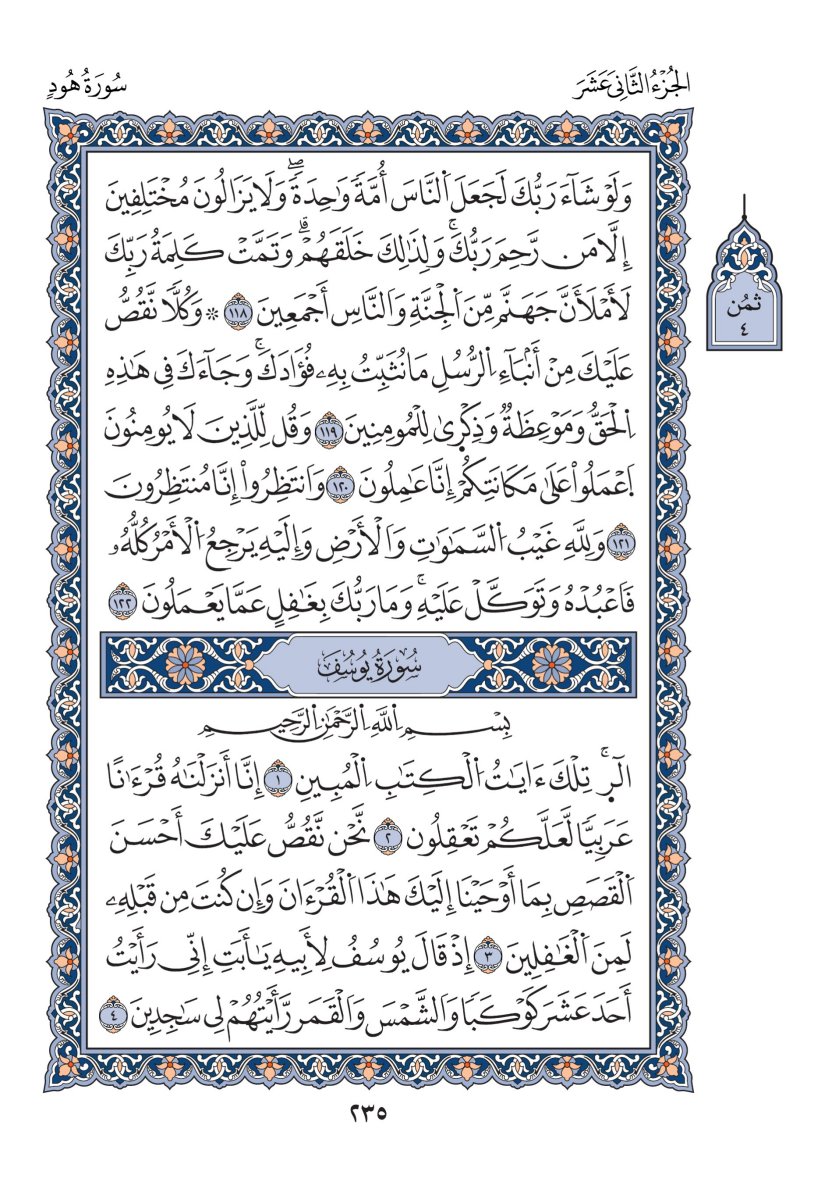 الجُزْءُ الثَّانِي عَشَرَ
سُورَةُ هُودٍ
وَلَوْ شَآءَ رَبُّكَ لَجَعَلَ اَ۬لنَّاسَ أُمَّةٗ وَٰحِدَةٗۖ وَلَا يَزَالُونَ مُخْتَلِفِينَ
إِلَّا مَن رَّحِمَ رَبُّكَۚ وَلِذَٰلِكَ خَلَقَهُمْۗ وَتَمَّتْ كَلِمَةُ رَبِّكَ
لَأَمْلَأَنَّ جَهَنَّمَ مِنَ اَ۬لْجِنَّةِ وَالنَّاسِ أَجْمَعِينَ ١١٨ ۞ وَكُلّٗا نَّقُصُّ
عَلَيْكَ مِنْ أَنۢبَآءِ اِ۬لرُّسُلِ مَا نُثَبِّتُ بِهِۦ فُؤَادَكَۚ وَجَآءَكَ فِي هَٰذِهِ
اِ۬لْحَقُّ وَمَوْعِظَةٞ وَذِكْر۪ىٰ لِلْمُومِنِينَ ١١٩ وَقُل لِّلَّذِينَ لَا يُومِنُونَ
اَ۪عْمَلُواْ عَلَىٰ مَكَانَتِكُمْ إِنَّا عَٰمِلُونَ ١٢٠ وَانتَظِرُوٓاْ إِنَّا مُنتَظِرُونَ
١٢١ وَلِلهِ غَيْبُ اُ۬لسَّمَٰوَٰتِ وَالْأَرْضِ وَإِلَيْهِ يَرْجِعُ اُ۬لْأَمْرُ كُلُّهُۥ
فَاعْبُدْهُ وَتَوَكَّلْ عَلَيْهِۚ وَمَا رَبُّكَ بِغَٰفِلٍ عَمَّا يَعْمَلُونَ ١٢٢
ثمُن
٤
سُورَةُ يُوسُفَ
بِسْمِ اِ۬للَّهِ اِ۬لرَّحْمَٰنِ اِ۬لرَّحِيمِ
أَلَٓر۪ۚ تِلْكَ ءَايَٰتُ اُ۬لْكِتَٰبِ اِ۬لْمُبِينِ ١ إِنَّا أَنزَلْنَٰهُ قُرْءَٰنًا
عَرَبِيّٗا لَّعَلَّكُمْ تَعْقِلُونَ ٢ نَّحْن نَّقُصُّ عَلَيْكَ أَحْسَنَ
اَ۬لْقَصَصِ بِمَا أَوْحَيْنَا إِلَيْكَ هَٰذَا اَ۬لْقُرْءَانَ وَإِن كُنتَ مِن قَبْلِهِۦ
لَمِنَ اَ۬لْغَٰفِلِينَ ٣ إِذْ قَالَ يُوسُفُ لِأَبِيهِ يَٰأَبَتِ إِنِّي رَأَيْتُ
أَحَدَ عَشَرَ كَوْكَبٗا وَالشَّمْسَ وَالْقَمَر رَّأَيْتُهُمْ لِي سَٰجِدِينَ ٤
٢٣٥